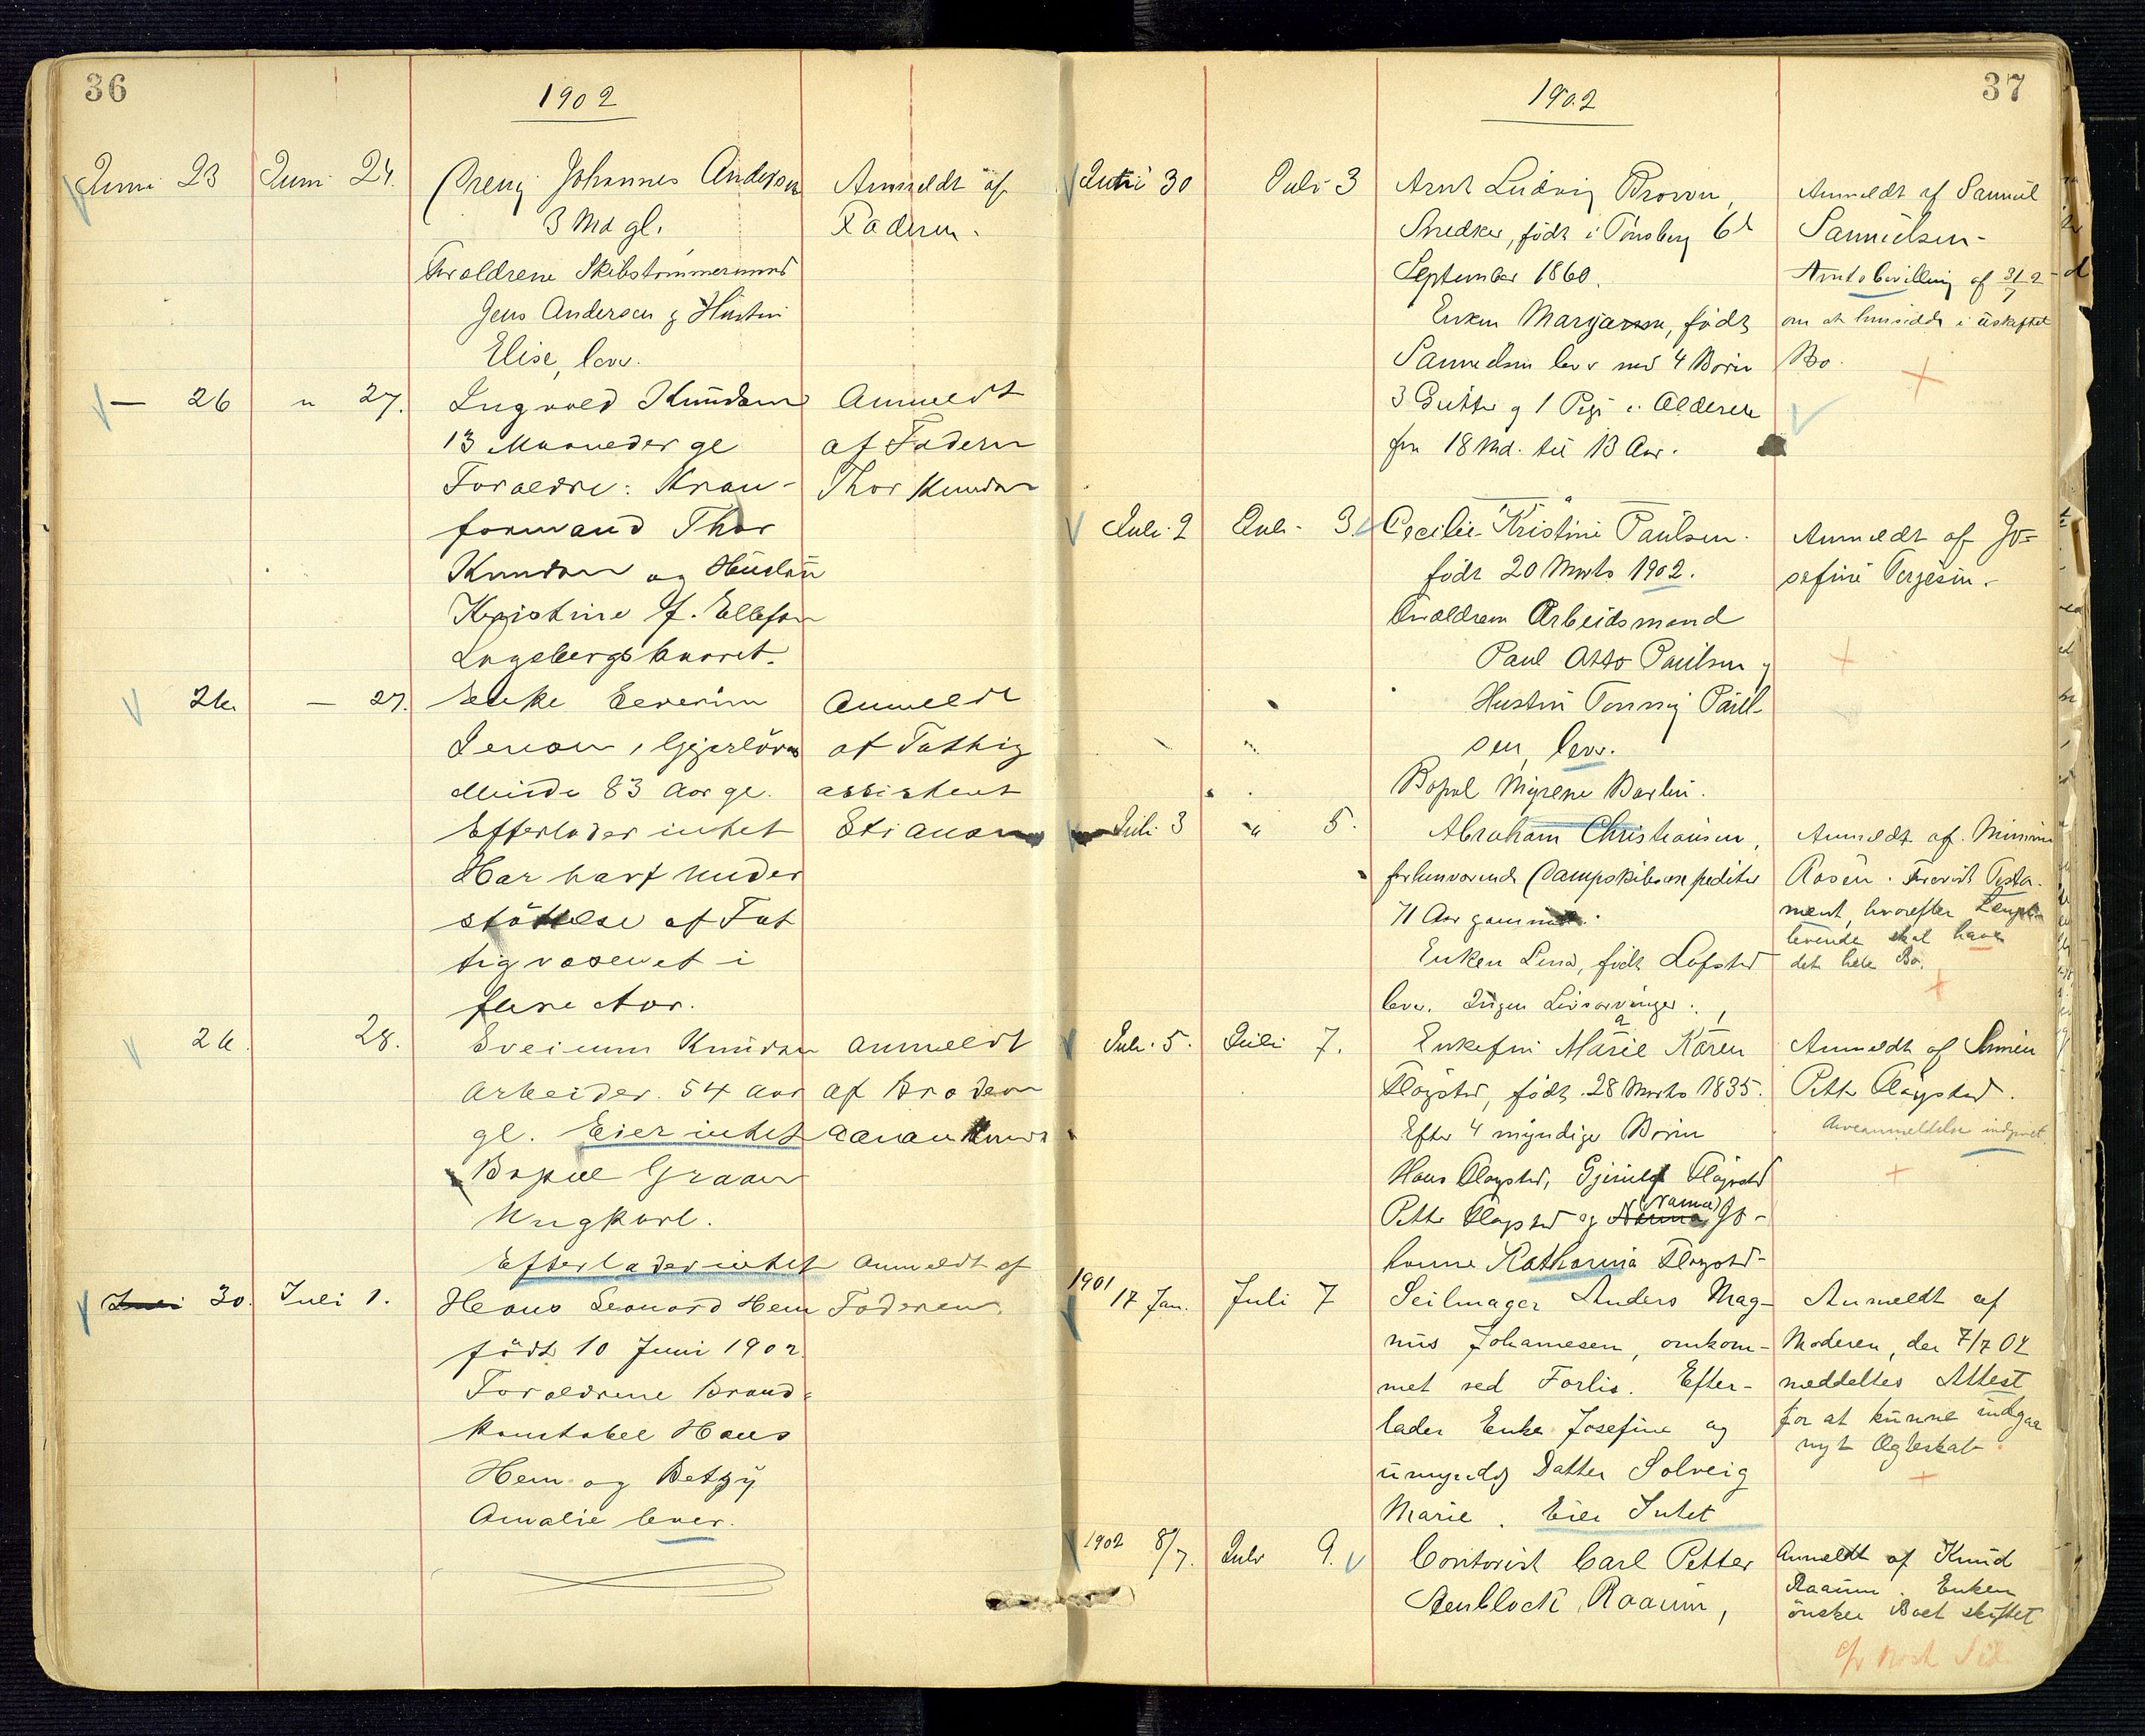 36
1902
Juni 23 Juni 24. Dreng Johannes Andersen Anmeldt af
3 Md gl. Faderen.
Forældrene Skibstømmermand
Jens Andersen & Hustru
Elise, lever.
— 26 " 27. Ingvald Knudsen Anmeldt
13 Maaneder gl af Faderen
Forældre: Kran- Thor Knudsen
formand Thor
Knudsen og Hustru
Kristine f. Ellefsen
26 — 27. Enke Severine Anmeldt
Jenson, af Fattig
Minde 83 Aar gl. assistent
Efterlader intet Stianson
Har havt under
støttelse af Fat
tigvæsenet i
flere Aar.
26. 28. Sveinum Knudsen Anmeldt
Arbeider. 54 Aar af Broderen
gl. Eier intet
Bopæl Graaen
Ungkarl.
Efterlader intet Anmeldt af
Juni 30. Juli 1. Hans Leonard Hem Faderen
født 10 Juni 1902
Forældrene Brand-
konstabel Hans
Hem og Betzy
Amalie lever.
37
1902
Juni 30 Juli 3 Arnt Ludvig Brovn, Anmeldt af Samuel
Snedker, født i Tønsberg 6t Samuelsen-
September 1860. Amtsbevilling af 31/7 2
Enken født om at hensidde i uskiftet
Samuelsen lever med 4 Børn Bo.
3 Gutter & 1 Pige i Alderen
fra 18 Md. til 13 Aar.
Juli 2 Juli 3. Cecilie Kristine Paulsen. Anmeldt af Jo-
født 20 Marts 1902. sefine Terjesen.
Forældrene Arbeidsmand
Paul Otto Paulsen &
Hustru Tonny Paul-
sen, lever.
Bopæl Myrene Barlin.
Juli 3 " 5. Abraham Christiansen, Anmeldt af
forhenværende Dampskibsexpeditør Rosen. Forevist Testa-
71 Aar gammel. ment, hvorefter Længst-
Enken Lena, født Løfsted levende skal have
lever. Ingen Livsarvinger. det hele Bo.
Juli 5. Juli 7. Enkefru Marie Karen Anmeldt af Sønnen
Fløysted, født 28 Marts 1835. Petter Fløysted.
Efter 4 myndige Børn Arveanmeldelse indgivet.
Hans Fløysted, Fløysted
Petter Fløysted og Nanna (Nanna) Jo-
hanne Katharina Fløysted-
1901
17 Jan. Juli 7 Seilmager Anders Mag- Anmeldt af
nus Johannesen, omkom- Moderen, der 7/7 02
met ved Forlis. Efter- meddeltes Attest
lader Enke Josefine og for at kunne indgaa
umyndig Datter Solveig nyt Ægteskab.
Marie. Eier Intet
1902 8/7. Juli 9. Contorist Carl Petter Anmeldt af Knud
Stenblock Raaum, Raaum. Enken
ønsker Boet skiftet